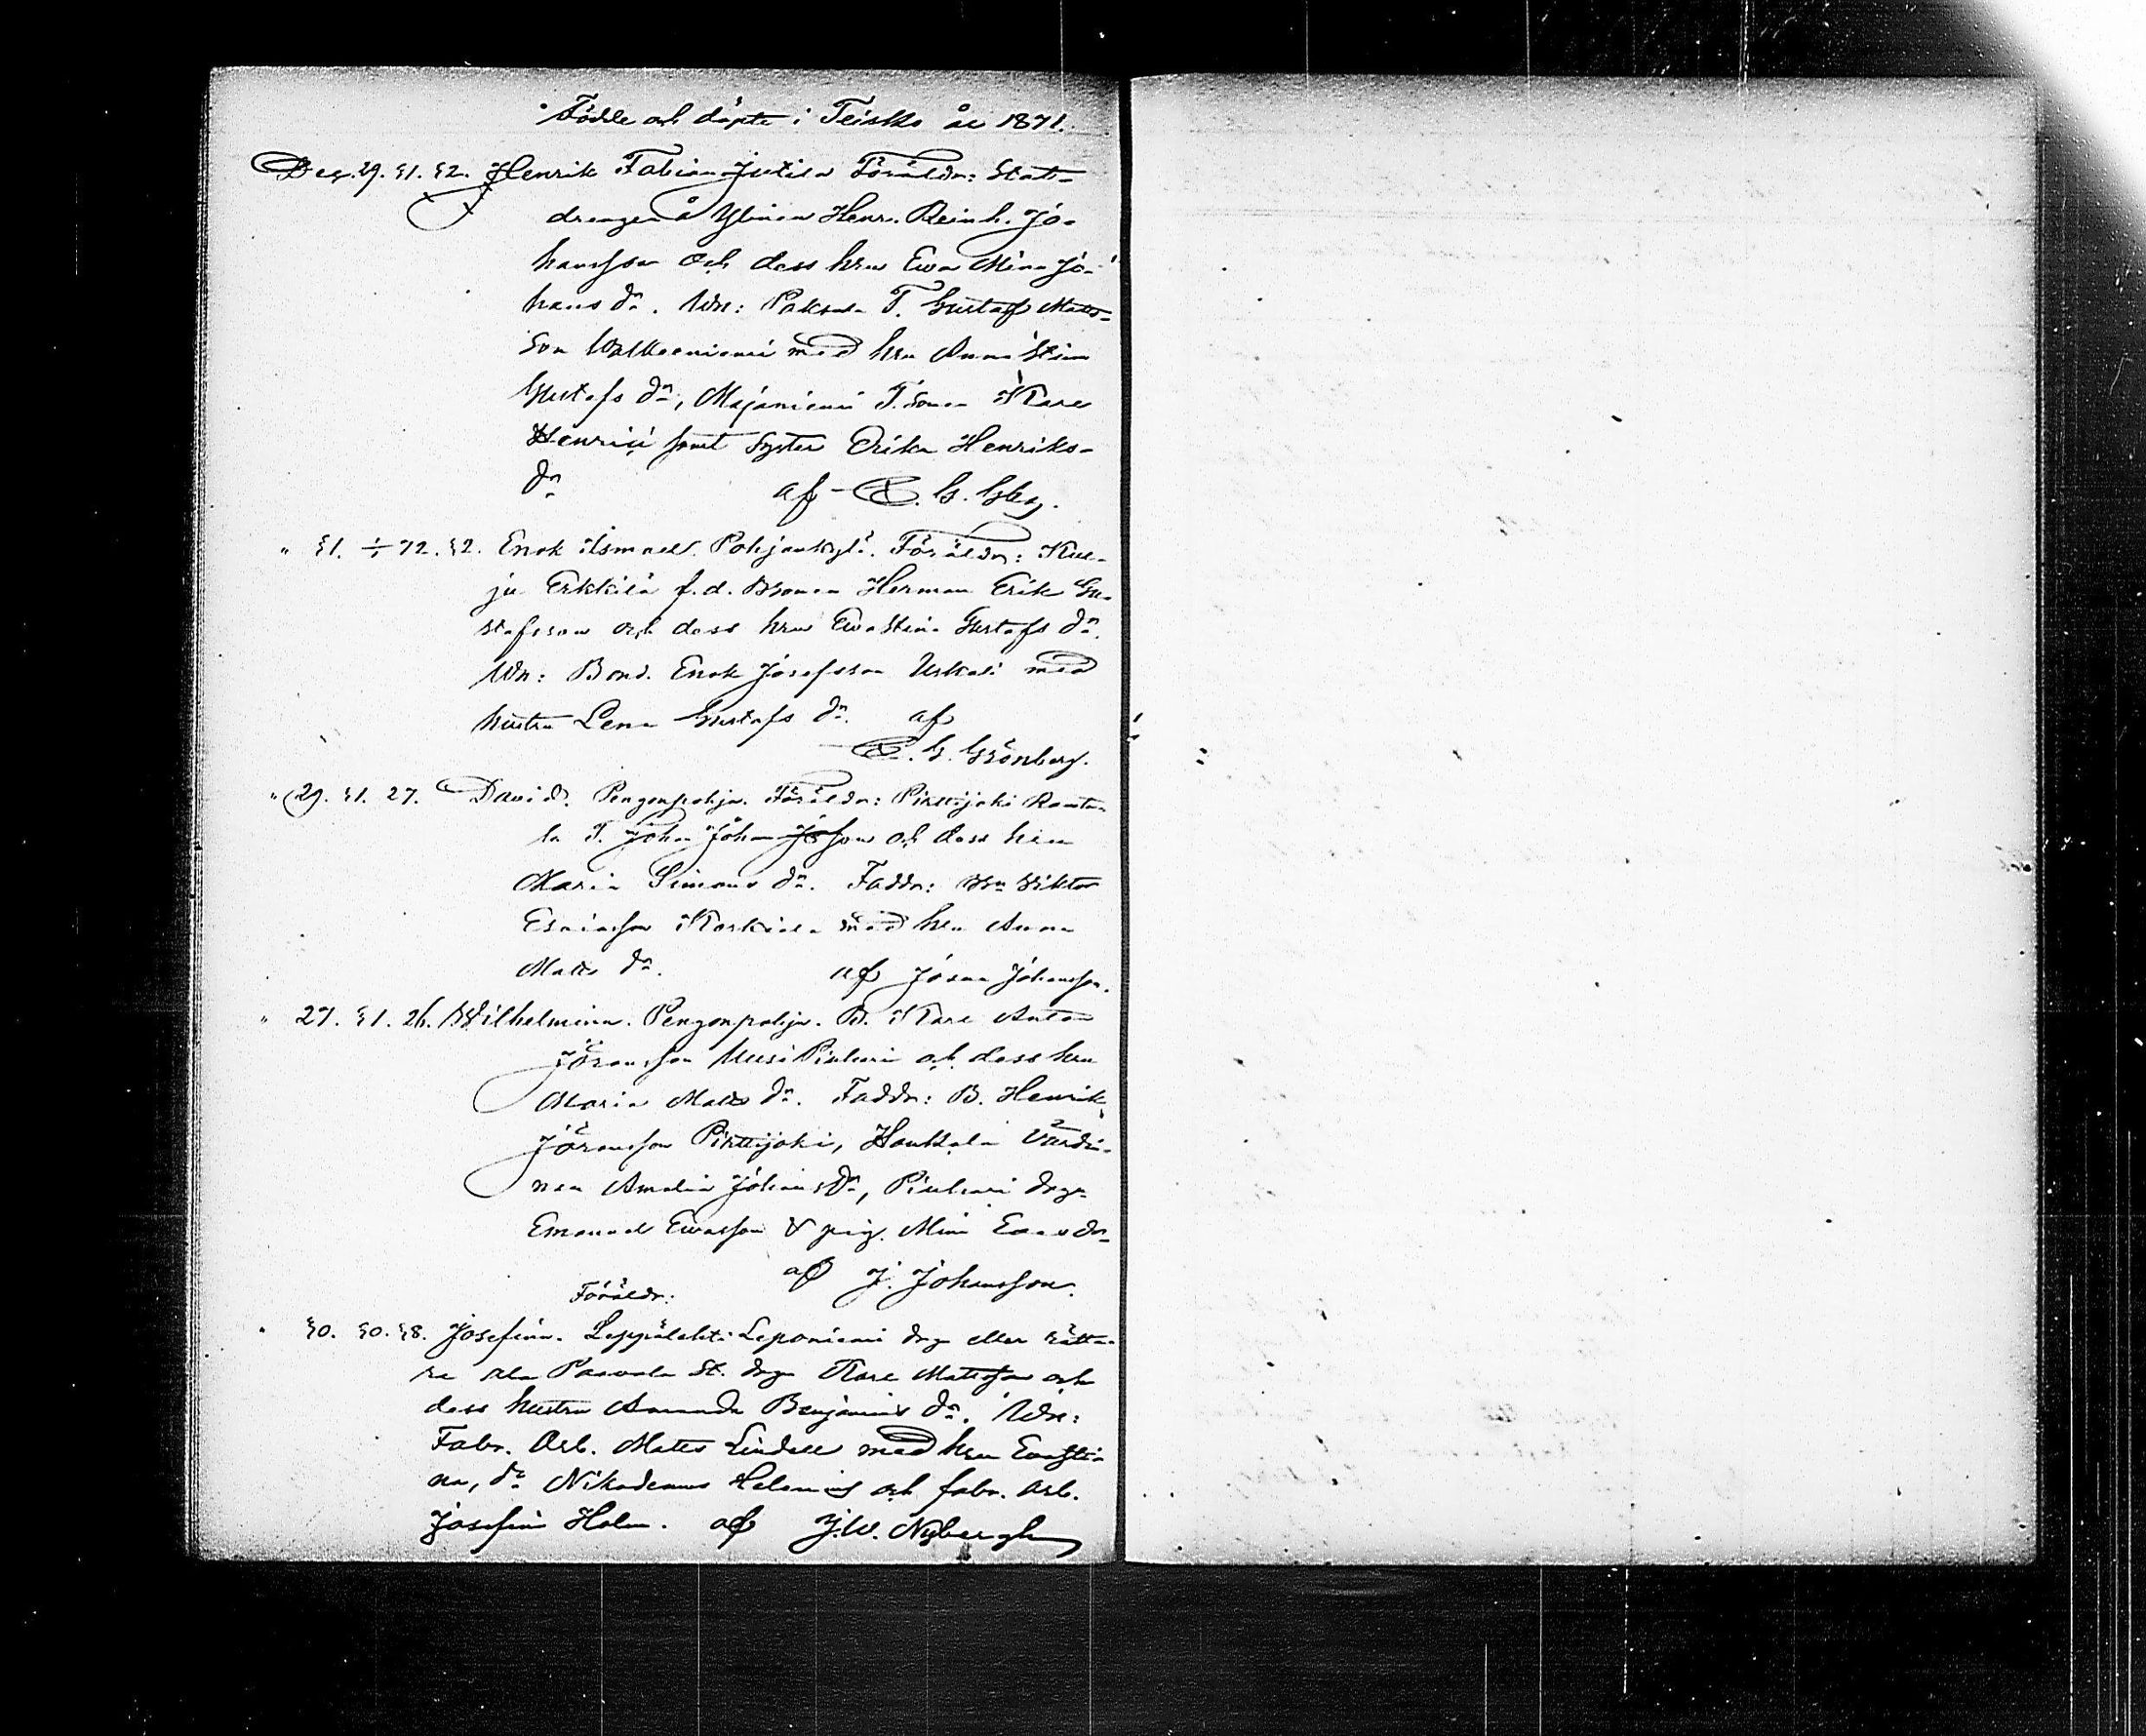 Födde och döpte i Teisko år 1871.
Dec. 29. 31. 32. Henrik Fabian Föräldr: Stat-
drengen å Ylinen Henr. Reinh. Jo-
hansson och dess hru Eva Mina Jo-
hans dr. Wn: T. Gustaf Matts-
son Walkeeniemi med hru Anna Stina
Gustafs dr, Majaniemi T. Sonen Kare
Henrici samt Syster Erika Henriks-
dr af E. G. Gbg.
" 31. 1/1 72. 32. Enok Ismael. Pohjankylä. Föräldr: Kur-
ju Erkkilä f.d. Bonen Herman Erik Gu-
stafsson och dess hru Eva Stina Gustafs dr.
Wn: Bond. Enok Josefsson Uskali med
hustru Lena Gustafs dr. af
E. G. Grönberg.
" 29. 31. 27. David. Pengonpohja. Föräldr: Pirttijoki Ranta-
la T. Johan Johan son och dess hru
Maria Simons dr. Faddr: Bn Wiktor
Esaiasson Korkiala med hru Anna
Matts dr. af Josua Johansson.
" 27. 31. 26. Wilhelmina. Pengonpohja. B. Kare Anton
Göransson Uusi Piuhari och dess hru
Maria Matts dr. Faddr: B. Henrik
Göransson Pirttijoki, Haukkala Värdin-
nan Amalia Johans dr, Piuhari drgn
Emanuel Ewasson & pig. Mina Esaedr
af J. Johansson.
Föräldr:
" 30. 30. 38. Josefina. Leppälahti Leponiemi drg eller rätta-
re Ala Paavola St. drg Kare Mattsson och
dess hustru Amanda Benjamins dr. Wn:
Fabr. Arb. Matts Lindell med hru Eva Sti-
na, dr Nikodemus Helenius och fabr. Arb.
Josefina Holm. af J. W. Nybergh